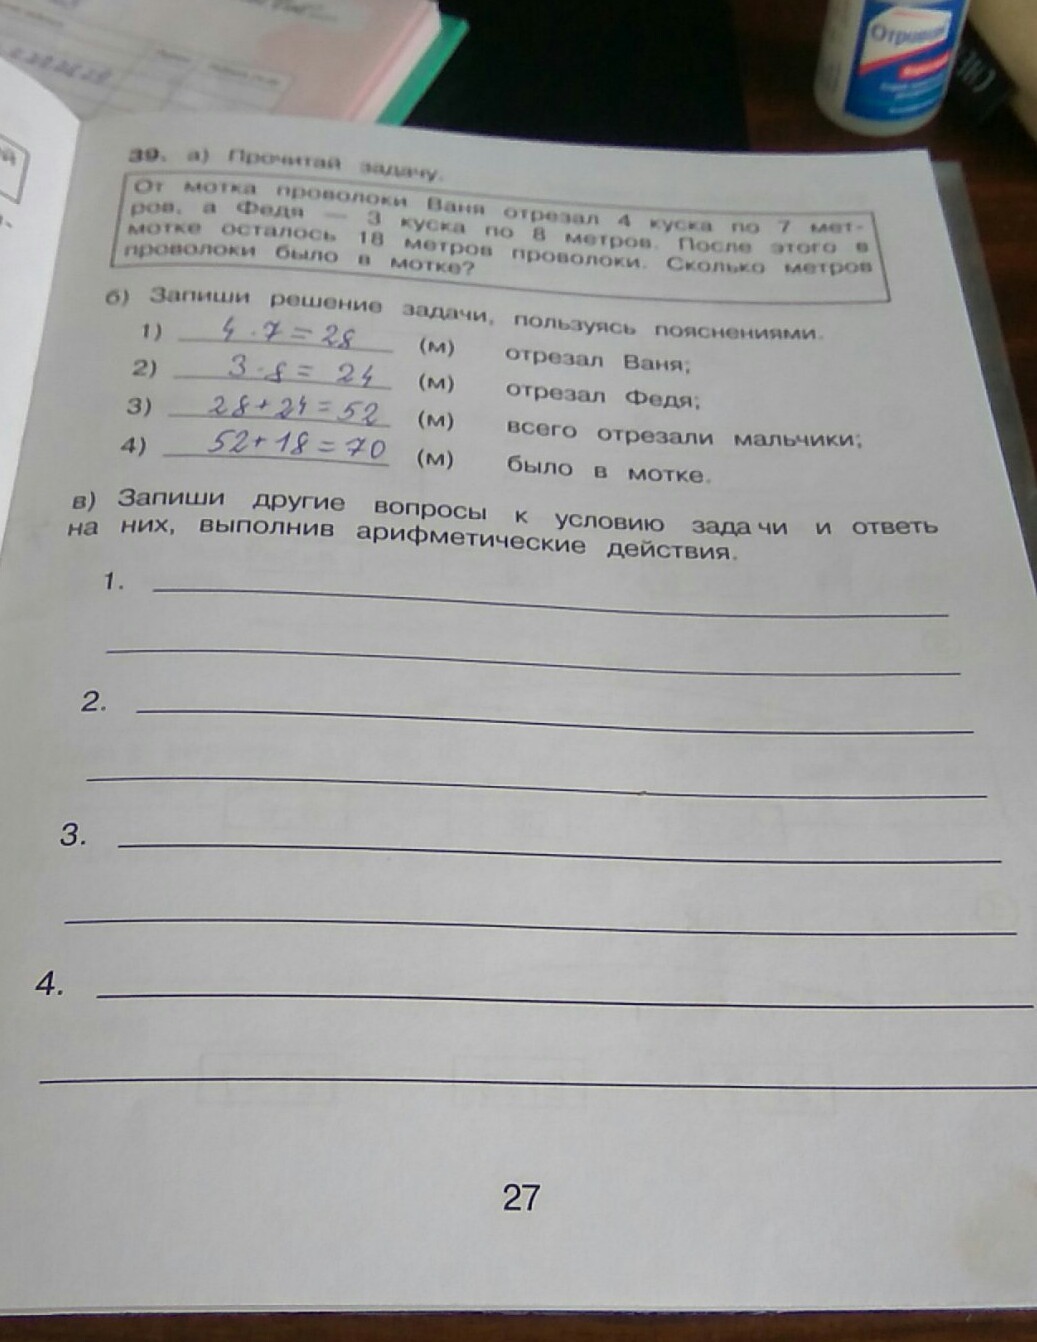 39. а) Прочитай задачу.
От мотка проволоки Ваня отрезал 4 куска по 7 мет-
ров, а Федя — 3 куска по 8 метров. После этого в
мотке осталось 18 метров проволоки. Сколько метров
проволоки было в мотке?
б) Запиши решение задачи, пользуясь пояснениями.
1) 4 · 7 = 28 (м) отрезал Ваня;
2) 3 · 8 = 24 (м) отрезал Федя;
3) 28 + 24 = 52 (м) всего отрезали мальчики;
4) 52 + 18 = 70 (м) было в мотке.
в) Запиши другие вопросы к условию задачи и ответь
на них, выполнив арифметические действия.
1.
2.
3.
4.
27